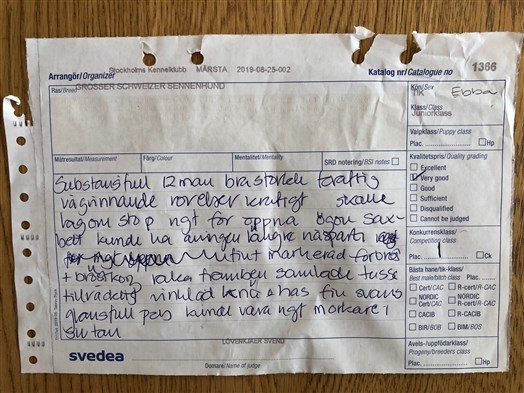 Stockholms Kennelklubb MÄRSTA 2019-08-25-002
Arrangör/Organizer
Katalog nr/Catalogue no 1366
Ras/Breed
GROSSER SCHWEIZER SENNENHUND
Kön/Sex
TIK Ebba
Klass/Class
Juniorklass
Valpklass/Puppy class
Plac. Hp
Mätresultat/Measurement Färg/Colour Mentalitet/Mentality SRD notering/BSI notes
Kvalitetspris/Quality grading
Excellent
Very good
Good
Sufficient
Disqualified
Cannot be judged
Konkurrensklass/
Competition class
Plac. 1 Ck
Bästa hane/tik-klass/
Best male/bitch class Plac.
Cert/CAC R-cert/R-CAC
NORDIC Cert/CAC NORDIC R-cert/R-CAC
CACIB R-CACIB
BIR/BOB BIM/BOS
Avels-/uppfödarklass/
Progeny/breeders class
Plac. Hp
Substansfull 12 mån bra storlek kraftig
vägvinnande rörelser kraftigt skalle
lagom stop ngt för öppna ögon sax-
bett kunde ha aningen längre nosparti
fint markerad förbröst
+ bröstkorg raka framben samlade tassar
tillräckligt vinklad knä + has fin svans
glansfull päls kunde vara ngt mörkare i
sin tan
LØVENKJÆR SVEND
svedea
Domare/Name of judge